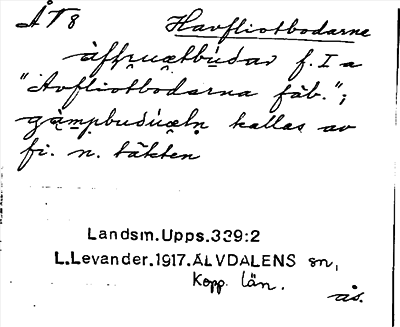 ÅT8 Havfliotbodarna
àffruætbùdar f. I a
"Avfliotbodarna fäb.";
gàmpbudúætn kallas av
fi. n. täkten
Landsm.Upps.339:2
L.Levander.1917.ÄLVDALENS sn,
Kopp. län.
ås.